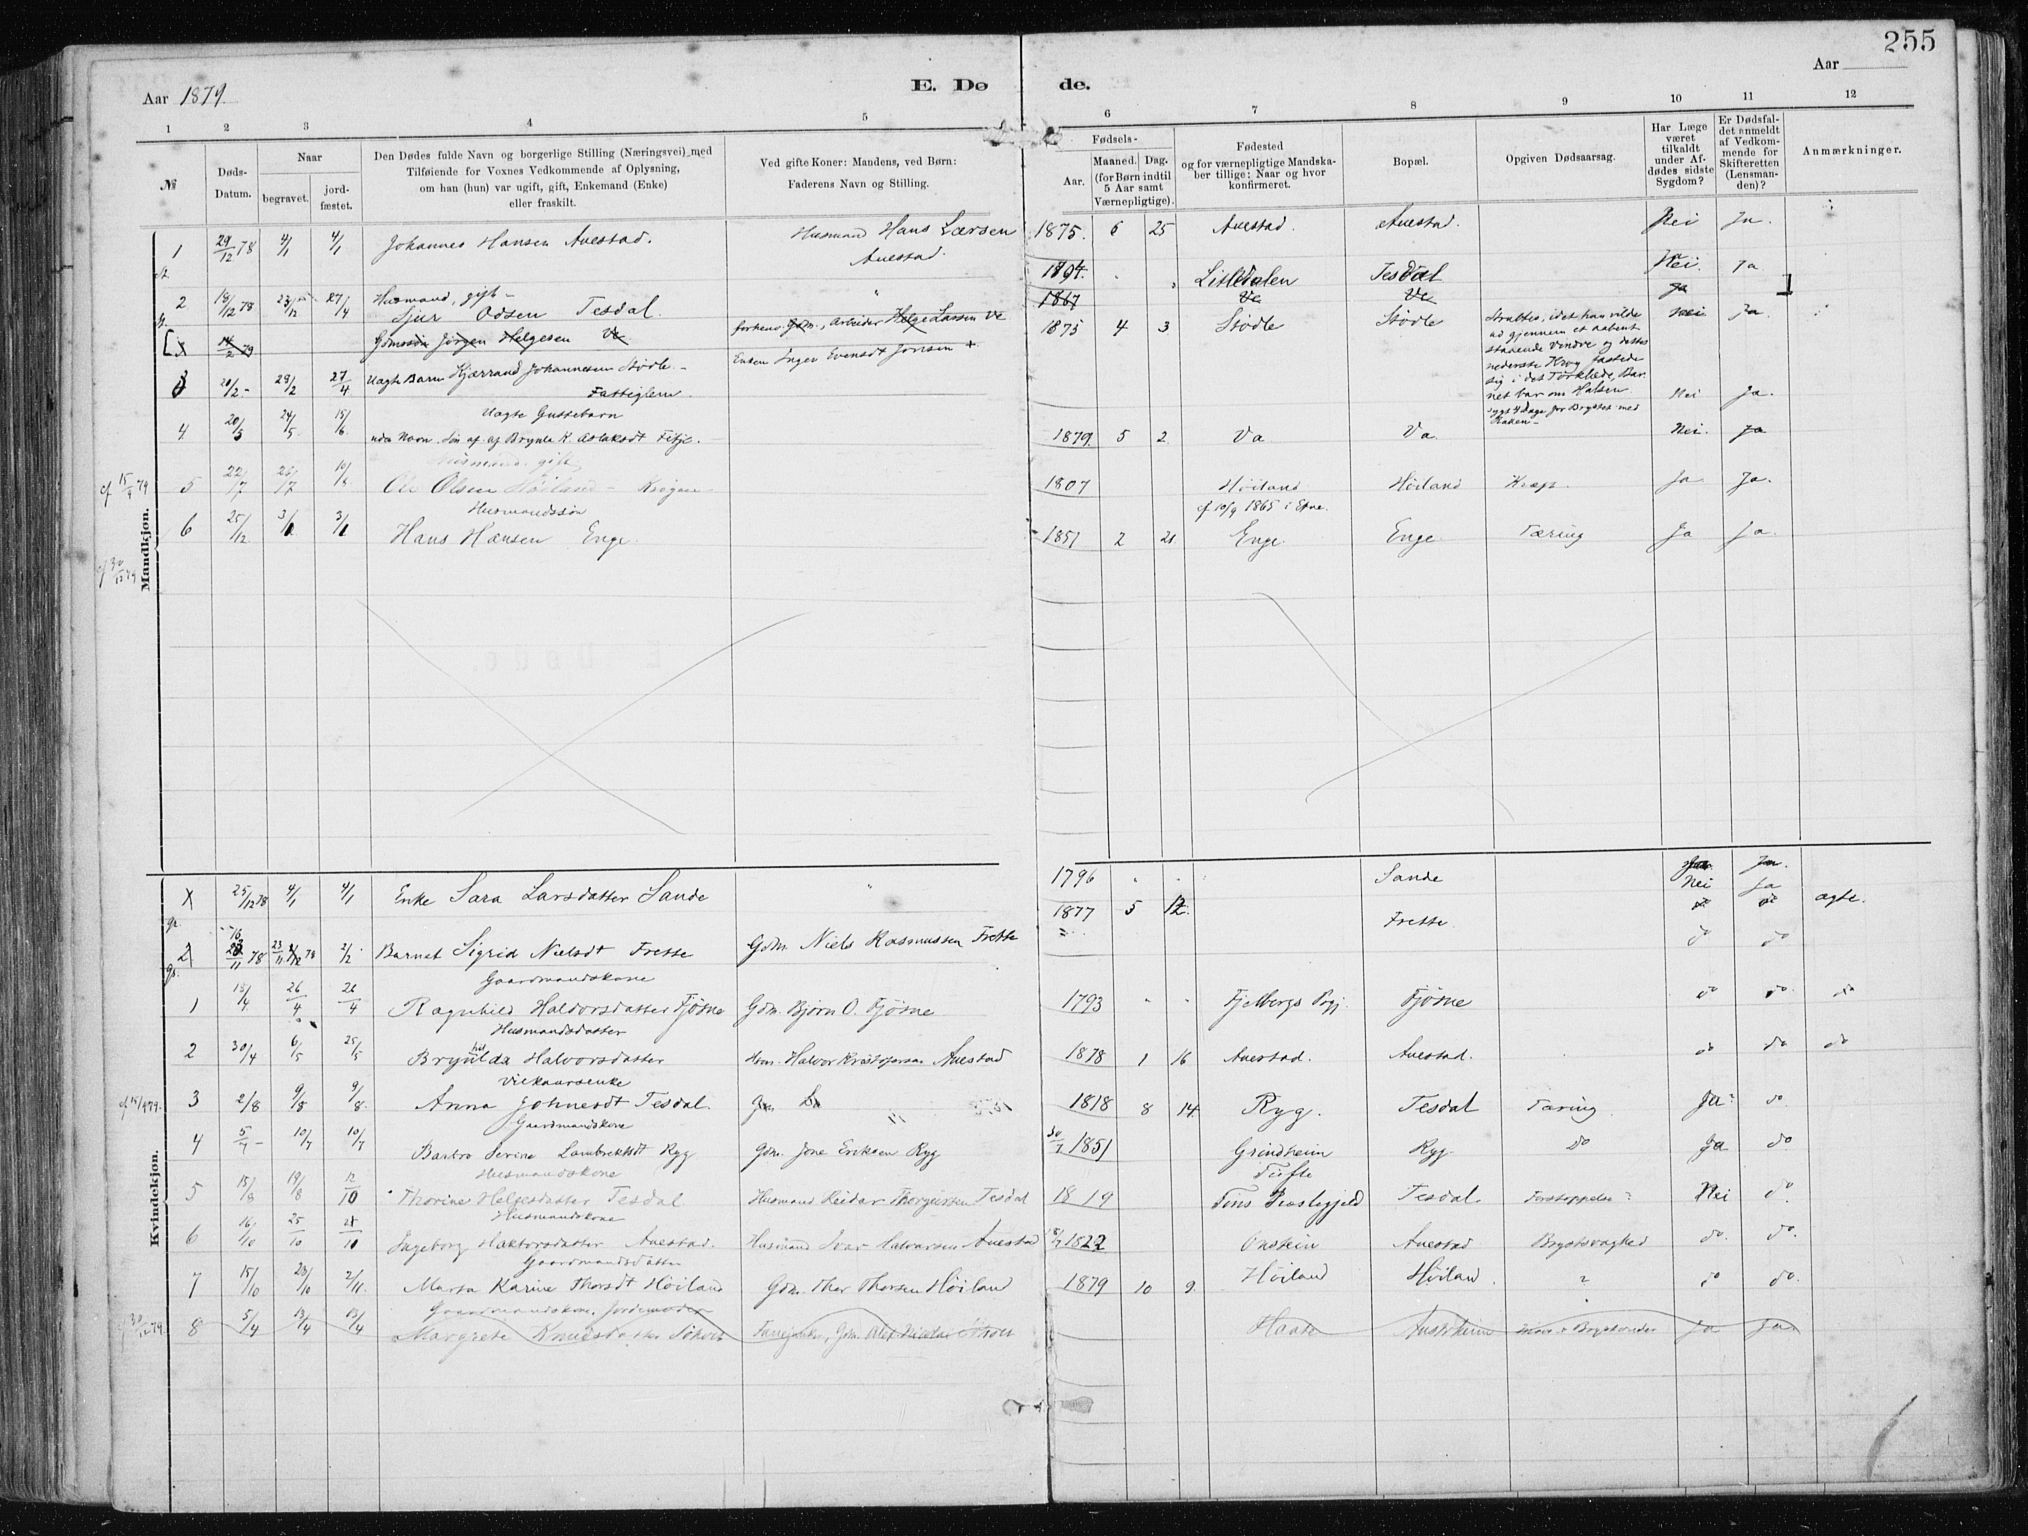 255
Aar 1879.
E. Dø
de.
Aar
1 2 3 4 5 6 7 8 9 10 11 12
№
Døds-Datum.
Naar
begravet.
jord-fæstet.
Den Dødes fulde Navn og borgerlige Stilling (Næringsvei), med
Tilføiende for Voxnes Vedkommende af Oplysning,
om han (hun) var ugift, gift, Enkemand (Enke)
eller fraskilt.
Ved gifte Koner: Mandens, ved Børn:
Faderens Navn og Stilling.
Fødsels-
Aar.
Maaned. Dag.
(for Børn indtil
5 Aar samt
Værnepligtige).
Fødested
og for værnepligtige Mandska-
ber tillige: Naar og hvor
konfirmeret.
Bopæl.
Opgiven Dødsaarsag.
Har Læge
været
tilkaldt
under Af-
dødes sidste
Sygdom?
Er Dødsfal-
det anmeldt
af Vedkom-
mende for
Skifteretten
(Lensman-
den)?
Anmærkninger.
Mandkjøn.
1 29/12 78 4/1 4/1 Johannes Hansen Auestad. Husmand Hans Larsen Auestad. 1875. 6 25 Auestad. Auestad. Nei Ja.
2 18/12 78 23/12 27/4 Husmand, gift - Sjur Odsen Tesdal. " 1794. Lilledalen Tesdal Nei. Ja
x 14/2 79 Gdmssøn Jørgen Helgesen Ve forhenv. Gdm., Arbeider Helge Larsen Ve 1867 Ve Ve Ja
3 20/2 - 28/2 27/4 Uægte Barn Kjærrand Johannesen Stødle - Fattiglem. Enken Inger Evensdt Jonsen + 1875 4 3 Stødle Stødle Nei Ja.
ud gjennem et aabent
staaende Vindve og
nederste Krog fastede
sig i det Tørklæde, Bar-
net bar om Halsen
4 20/5 24/5 15/6 Uægte Guttebarn
uden Navn. Søn af af Brynla K. Aslaksdt Fitje. 1879. 5 2 Va Va. Nei. Ja
cf 15/9 79
5 22/7 26/7 10/8 Husmand. gift,
Ole Olsen Høiland - 1807 Høiland Høiland Kræft. Ja Ja.
cf 10/9 1865 i Etne.
6 25/12 3/1 3/1 Husmandssøn
Hans Hansen Enge. 1851 2 21 Enge Enge. Tæring Ja Ja.
Kvindekjøn.
x 25/12 78 4/1 4/1 Enke Sara Larsdatter Sande " 1796 Sande Nei Ja
2 78 2/2 Barnet Sigrid Nielsdt Frette Gdm. Niels Rasmussen Frette 1877 5 12. Frette do do ægte.
1 15/4 26/4 26/4 Gaardmandskone
Ragnhild Haldorsdatter Fjøsne Gdm. Bjørn O. Fjøsne 1793 " " Fjelbergs Prgj. Fjøsne do do do
2 30/4 6/5 25/5 Husmandsdatter
Brynhilda Halvorsdatter Hsm. Halvor Kristofersen Auestad 1878 1 16 Auestad. Auestad. do do do
3 2/8 9/8 9/8. Vilkaarsenke
Anna Johnesdt Tesdal. 1818 8 14. Ryg. Tesdal Tæring Ja do
4 5/7 - 10/7 10/7 Gaardmandskone
Barbro Serine Lambrektsdt Ryg Gdm. Jone Eriksen Ryg 30/7 1851 Grindheim Ryg do Ja do
5 15/8 19/8 12/10 Husmandskone
Thorine Helgesdatter Tesdal Husmand Reidar Thorgersen Tesdal 1819 Tufte
Præstegjeld Tesdal Forstoppelse? Nei do
6 16/10 25/10 21/10 Husmandskone
Ingeborg Haktorsdatter Auestad. Husmand Ivar Halvorsen Auestad 1822 Onstein Auestad Brystsvaghed do do.
7 15/10 23/10 2/11. Gaardmandsdatter
Marta Karine Thorsdt Høiland Gdm. Thor Thorsen Høiland 1879 10 9. Høiland Høiland. ? do do.
8 5/4 13/4 13/4 Gaardmandskone, Jordemoder
Margrete Knudsdatter Ja Ja